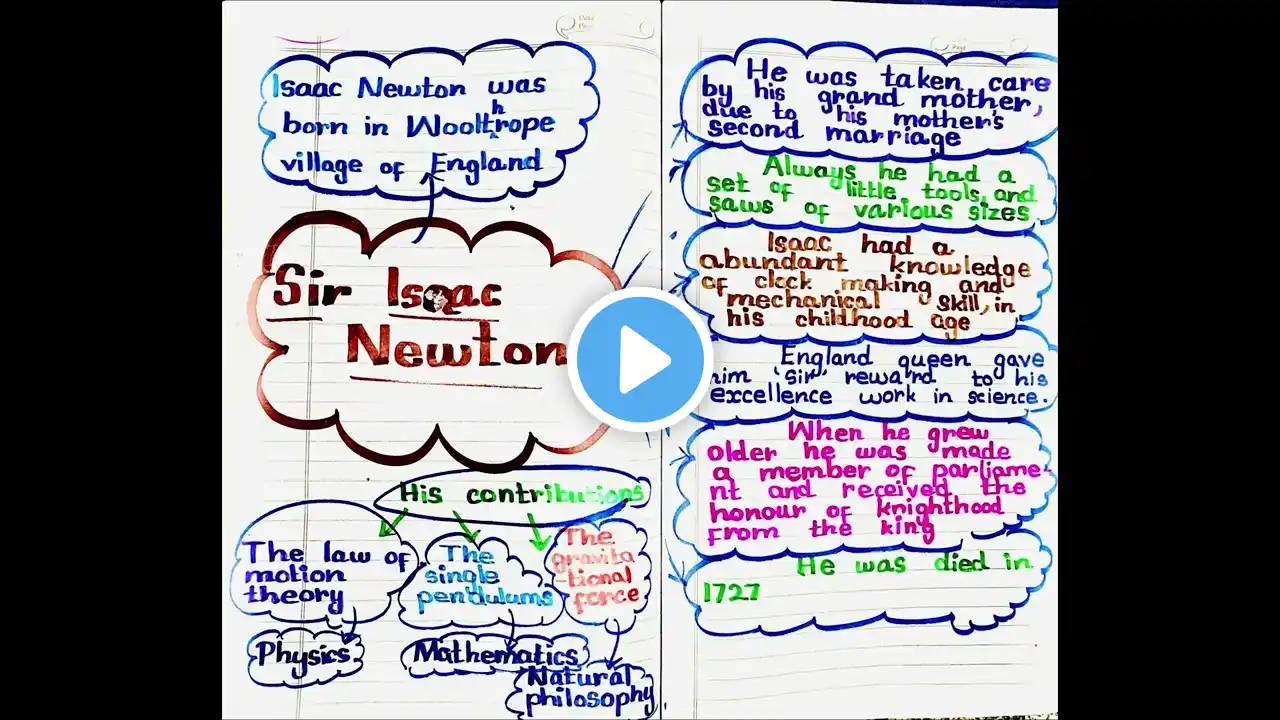 Isaac Newton was
born in Woolthrope
village of England
Sir Isaac
Newton
His contributions
The law of
motion
theory
The
single
pendulums
The
gravita
-tional
force
Physics
Mathematics
Natural
philosophy
He was taken care
by his grand mother,
due to his mother's
second marriage
Always he had a
set of little tools, and
saws of various sizes
Isaac had a
abundant knowledge
of clock making and
mechanical skill, in
his childhood age
England queen gave
him 'sir' reward to his
excellence work in science.
When he grew
older he was made
a member of parliame-
nt and received the
honour of knighthood
from the king
He was died in
1727